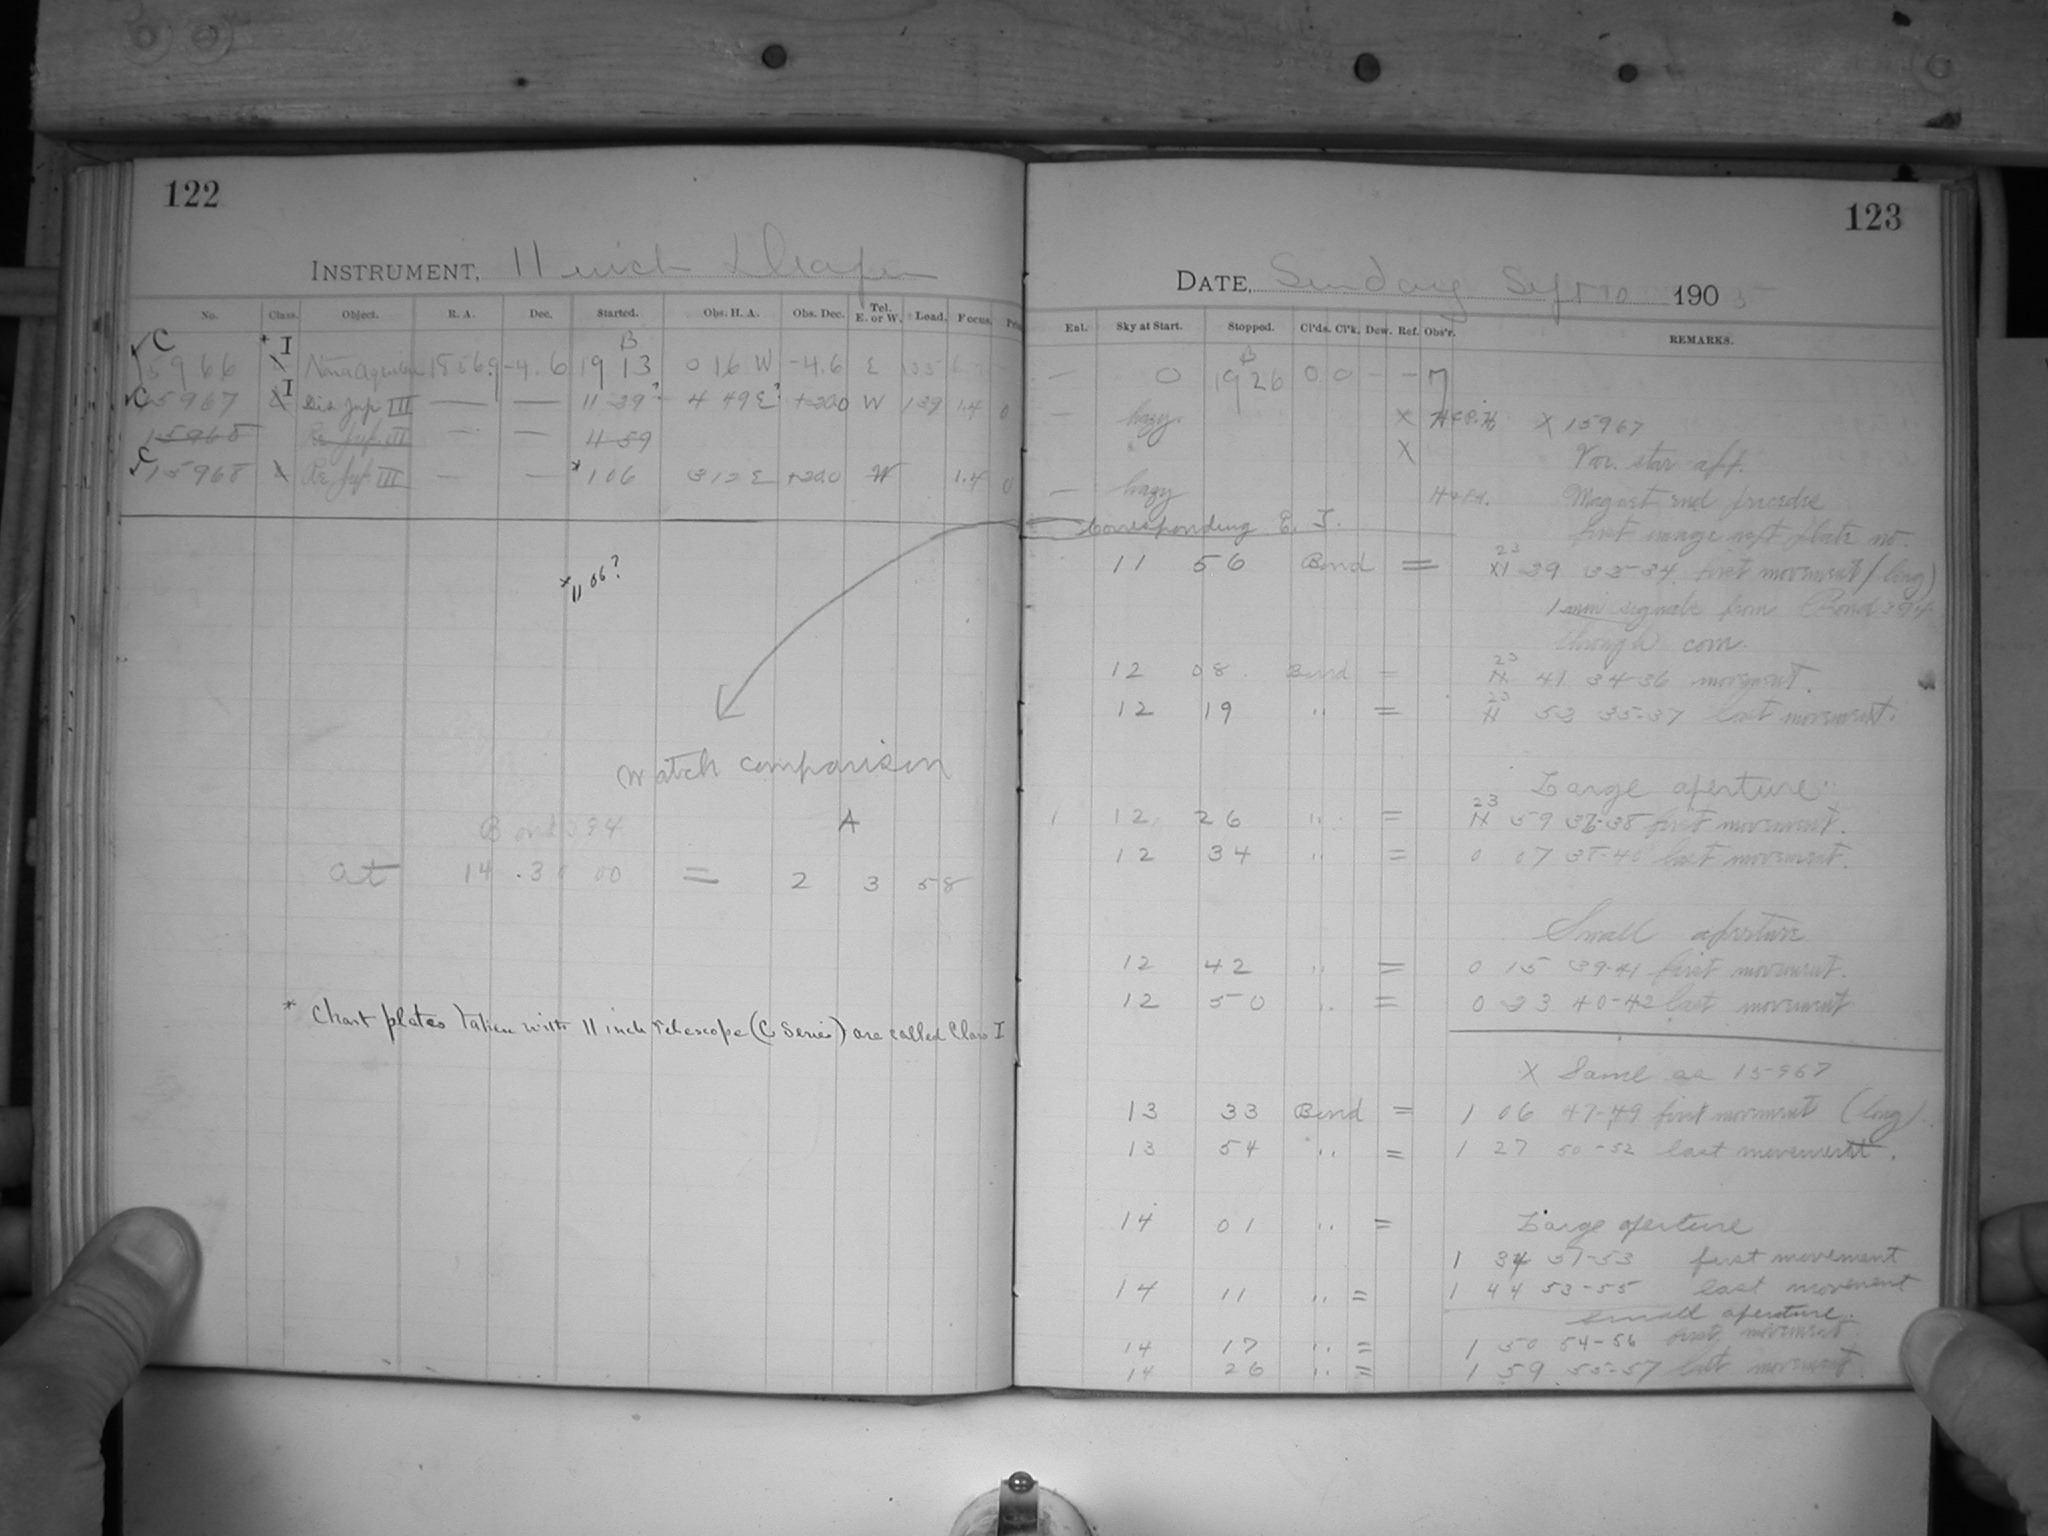 122
INSTRUMENT, 11 inch Draper
No. Class. Object. R. A. Dec. Started. Obs. H. A. Obs. Dec. Tel. E. or W. Load. Focus.
C * I B
15966 Nova Aquilae 18 56.9 -4.6 19 13 0 16 W -4.6 E
C 15967 I Dis Jup III — — 11 39? 4 49 E? +20.0 W 139 1.4 0
15968 Re Jup III — — 11 59
C 15968 Re Jup III — — * 1 06 3 12 E +20.0 W 1.4 0
* 11 06?
Watch comparison
Bond 394 A
at 14 . 30 00 = 2 3 58
* Chart plates taken with 11 inch telescope (C Series) are called Class I
123
DATE, Sunday Sept 10 1905
Enl. Sky at Start. Stopped. Cl'ds. Cl'k. Dew. Ref. Obs'r. REMARKS.
B
— 0 19 26 0 0 - - 7
— hazy. X X 15967
X Var. star aff.
— hazy Magast end precedes
Corresponding E. T. first image next plate no.
11 56 Bond = 23 39 33-34 first movement (long)
1 min signals from Bond 394
though com.
12 08 Bond = 23 41 34-36 movement.
12 19 " = 23 52 35-37 last movement.
Large aperture.
12 26 " = 23 59 36-38 first movement.
12 34 " = 0 07 38-40 last movement.
Small aperture
12 42 " = 0 15 39-41 first movement.
12 50 " = 0 23 40-42 last movement
X Same as 15967
13 33 Bond = 1 06 47-49 first movement (long).
13 54 " = 1 27 50-52 last movement.
14 01 " = Large aperture
1 34 51-53 first movement
14 11 " = 1 44 53-55 last movement
Small aperture.
14 17 " = 1 50 54-56 first movement
14 26 " = 1 59 55-57 last movement